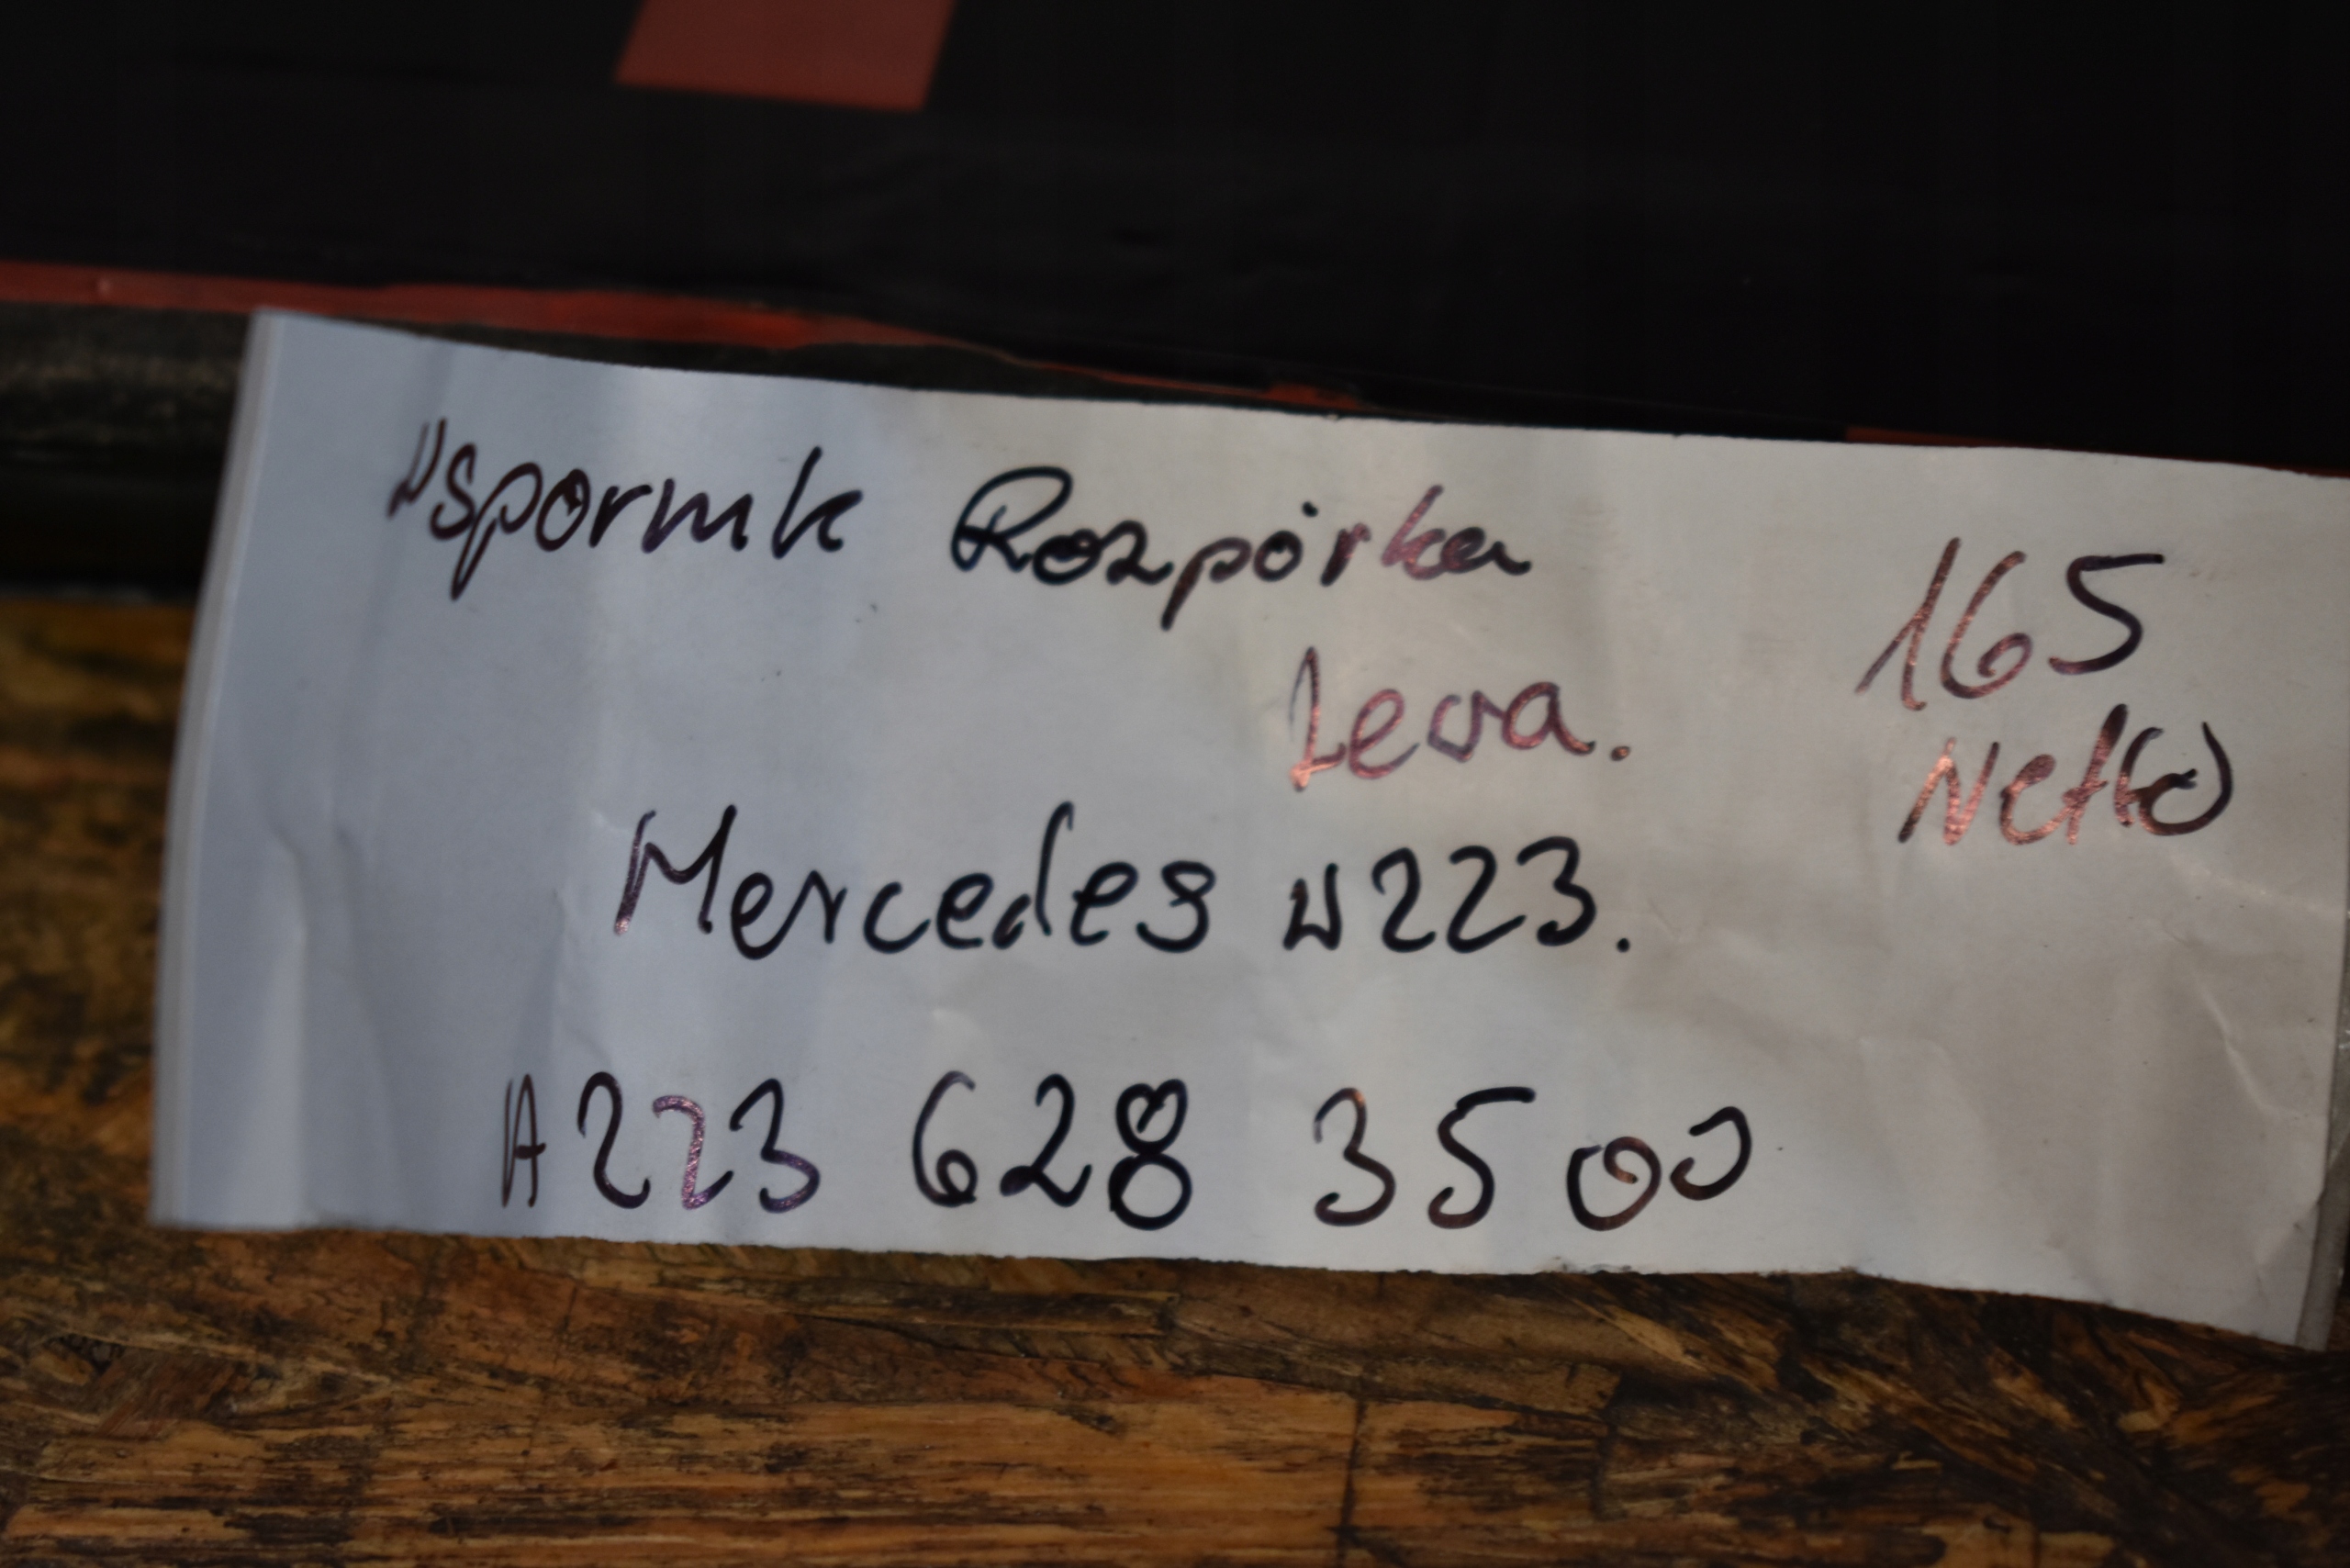 Wspornik Rozpórka
Lewa.
165
Netto
Mercedes W223.
A223 628 3500